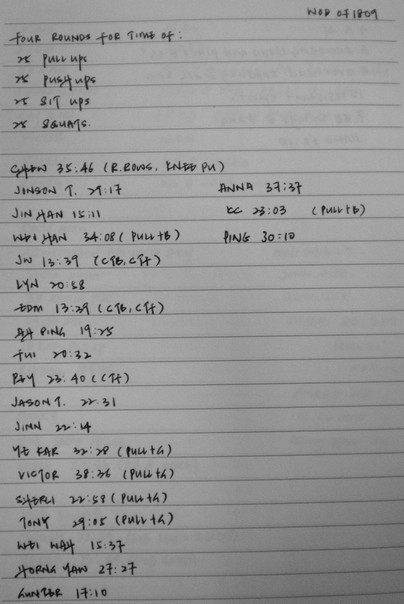 WOD 071809
FOUR ROUNDS FOR TIME OF:
25 PULL UPS
25 PUSH UPS
25 SIT UPS
25 SQUATS.
35:46 (R.ROWS, KNEE PU)
JONSON T. 29:17
JIN HAN 15:11
WEI HAN 34:08 (PULL+B)
JW 13:39 (CTB, CTF)
LYN 20:58
EDM 13:29 (CTB, CTF)
AH PING 19:25
20:32
23:40 (CTF)
JASON T. 22:31
JINN 22:14
YE KAR 32:28 (PULL+G)
VICTOR 38:36 (PULL+G)
SHERLI 22:58 (PULL+G)
TONY 29:05 (PULL+G)
WEI WAH 15:37
HORNG YAW 27:27
GUNTER 17:10
ANNA 37:37
KC 23:03 (PULL+B)
PING 30:10